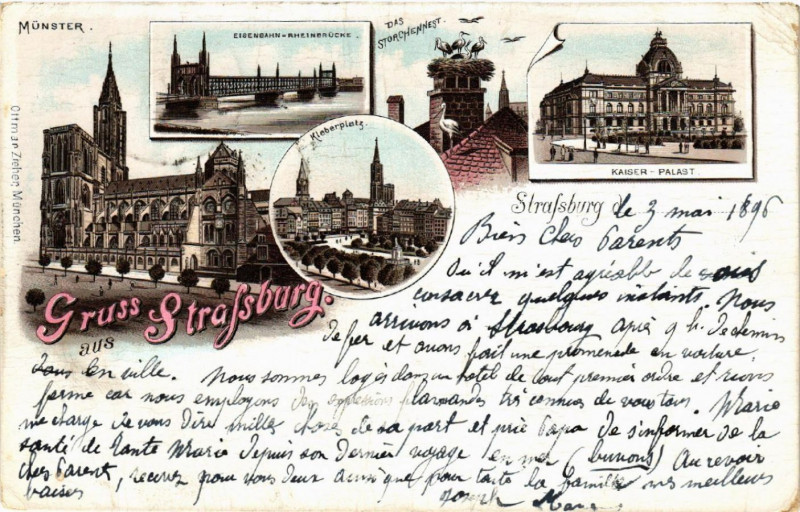 MÜNSTER.
EISENBAHN=RHEINBRÜCKE.
DAS
STORCHENNEST.
KAISER - PALAST
Kleberplatz.
Ottmar Zieher, München.
Gruss
aus
Straſsburg.
Straſsburg d. le 3 mai 1896
Biens Chers Parents
Qu'il m'est agréable de vous
consacrer quelques instants. Nous
arrivons à Strasbourg après 9 h. de chemin
de fer et avons fait une promenade en voiture
en ville. Nous sommes logés dans un hotel de tout premier ordre et rions
ferme car nous employons des expressions flamandes très connues de vous tous. Marie
me charge de vous dire milles choses de sa part et prie Papa de s'informer de la
santé de tante Marie depuis son dernier voyage en mer (buvons) Au revoir
chers Parent, recevez pour vous deux ainsi que pour toute la famille nos meilleurs
baisers Joseph Marie